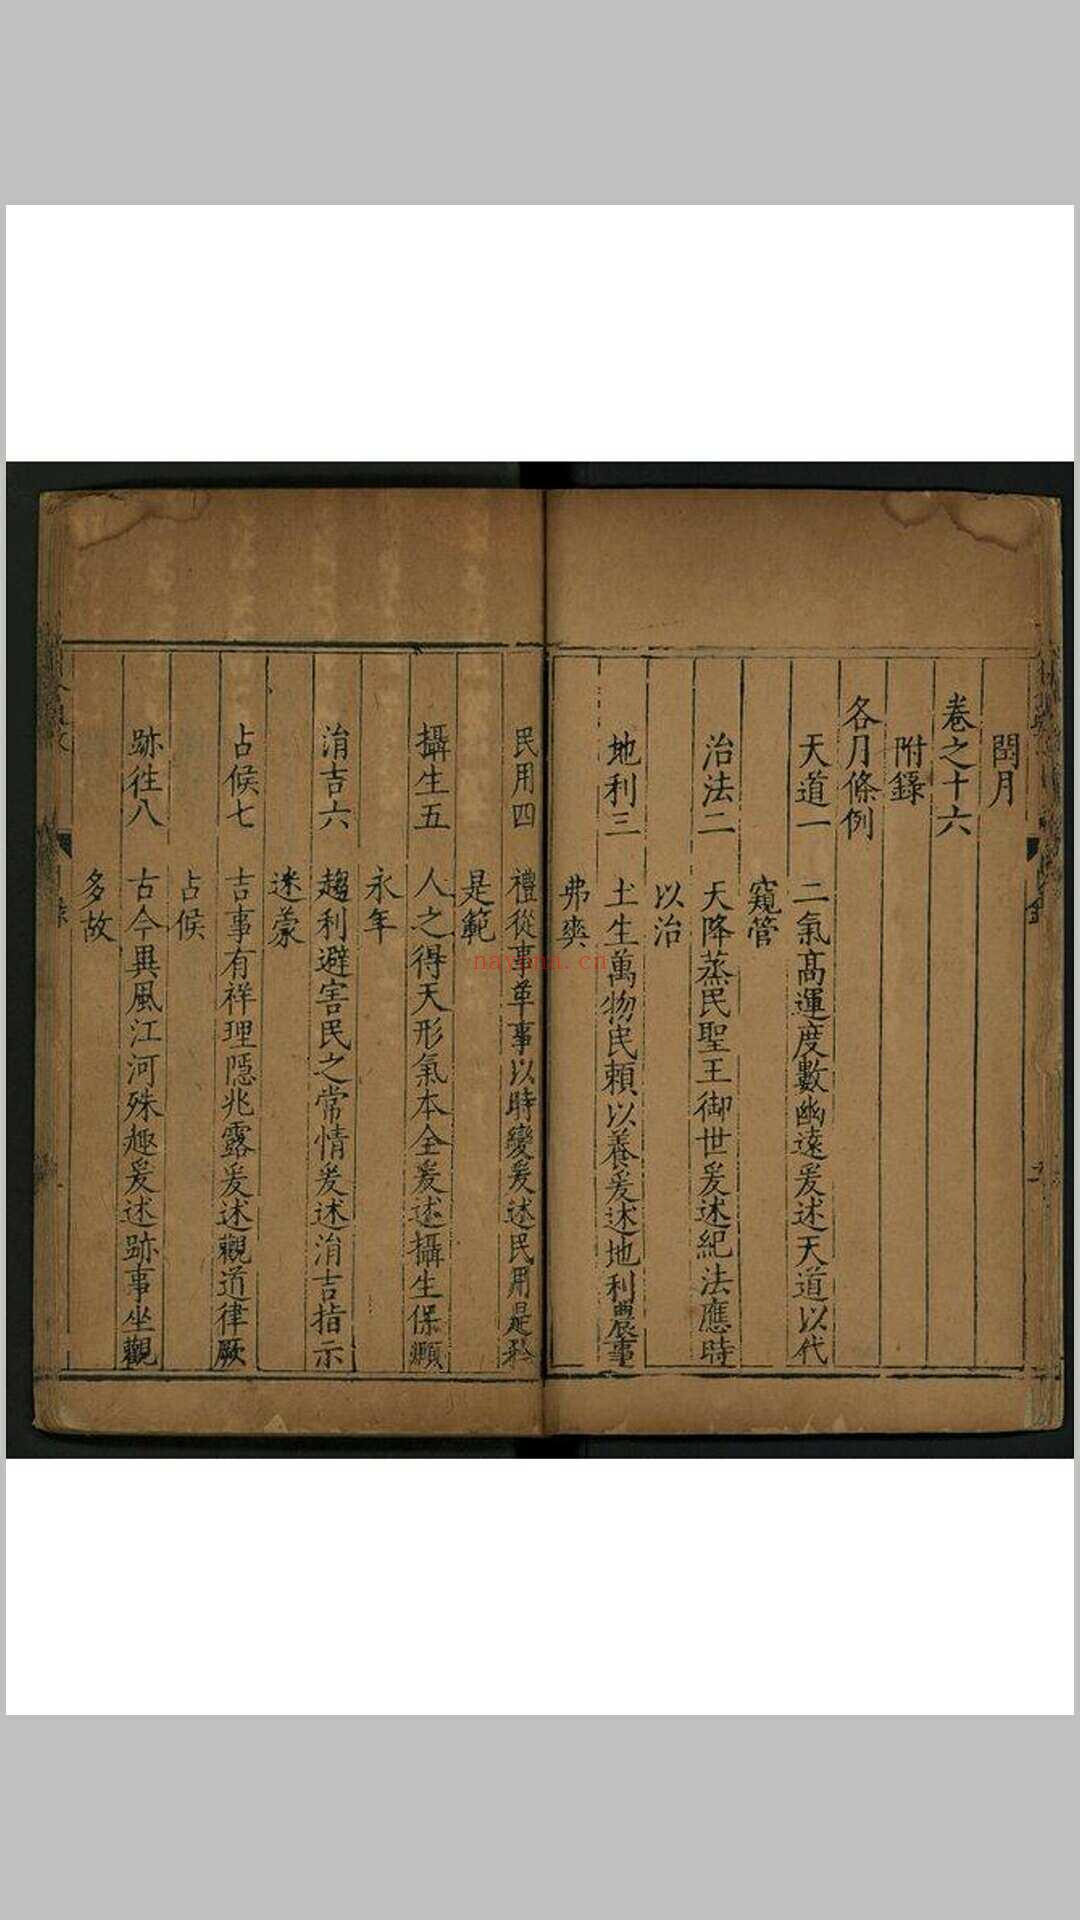 閏月
卷之十六
附錄
各月條例
天道一 二氣髙運度數幽遠爰述天道以代
窺管
治法二 天降蒸民聖王御世爰述紀法應時
以治
地利三 土生萬物民頼以養爰述地利農事
弗爽
民用四 禮從事革事以時變爰述民用是矜
是範
攝生五 人之得天形氣本全爰述攝生保順
永年
涓吉六 趨利避害民之常情爰述涓吉指示
迷蒙
占候七 吉事有祥理隱兆露爰述觀道律厥
占候
跡徃八 古今異風江河殊趣爰述跡事坐觀
多故
nayona.cn